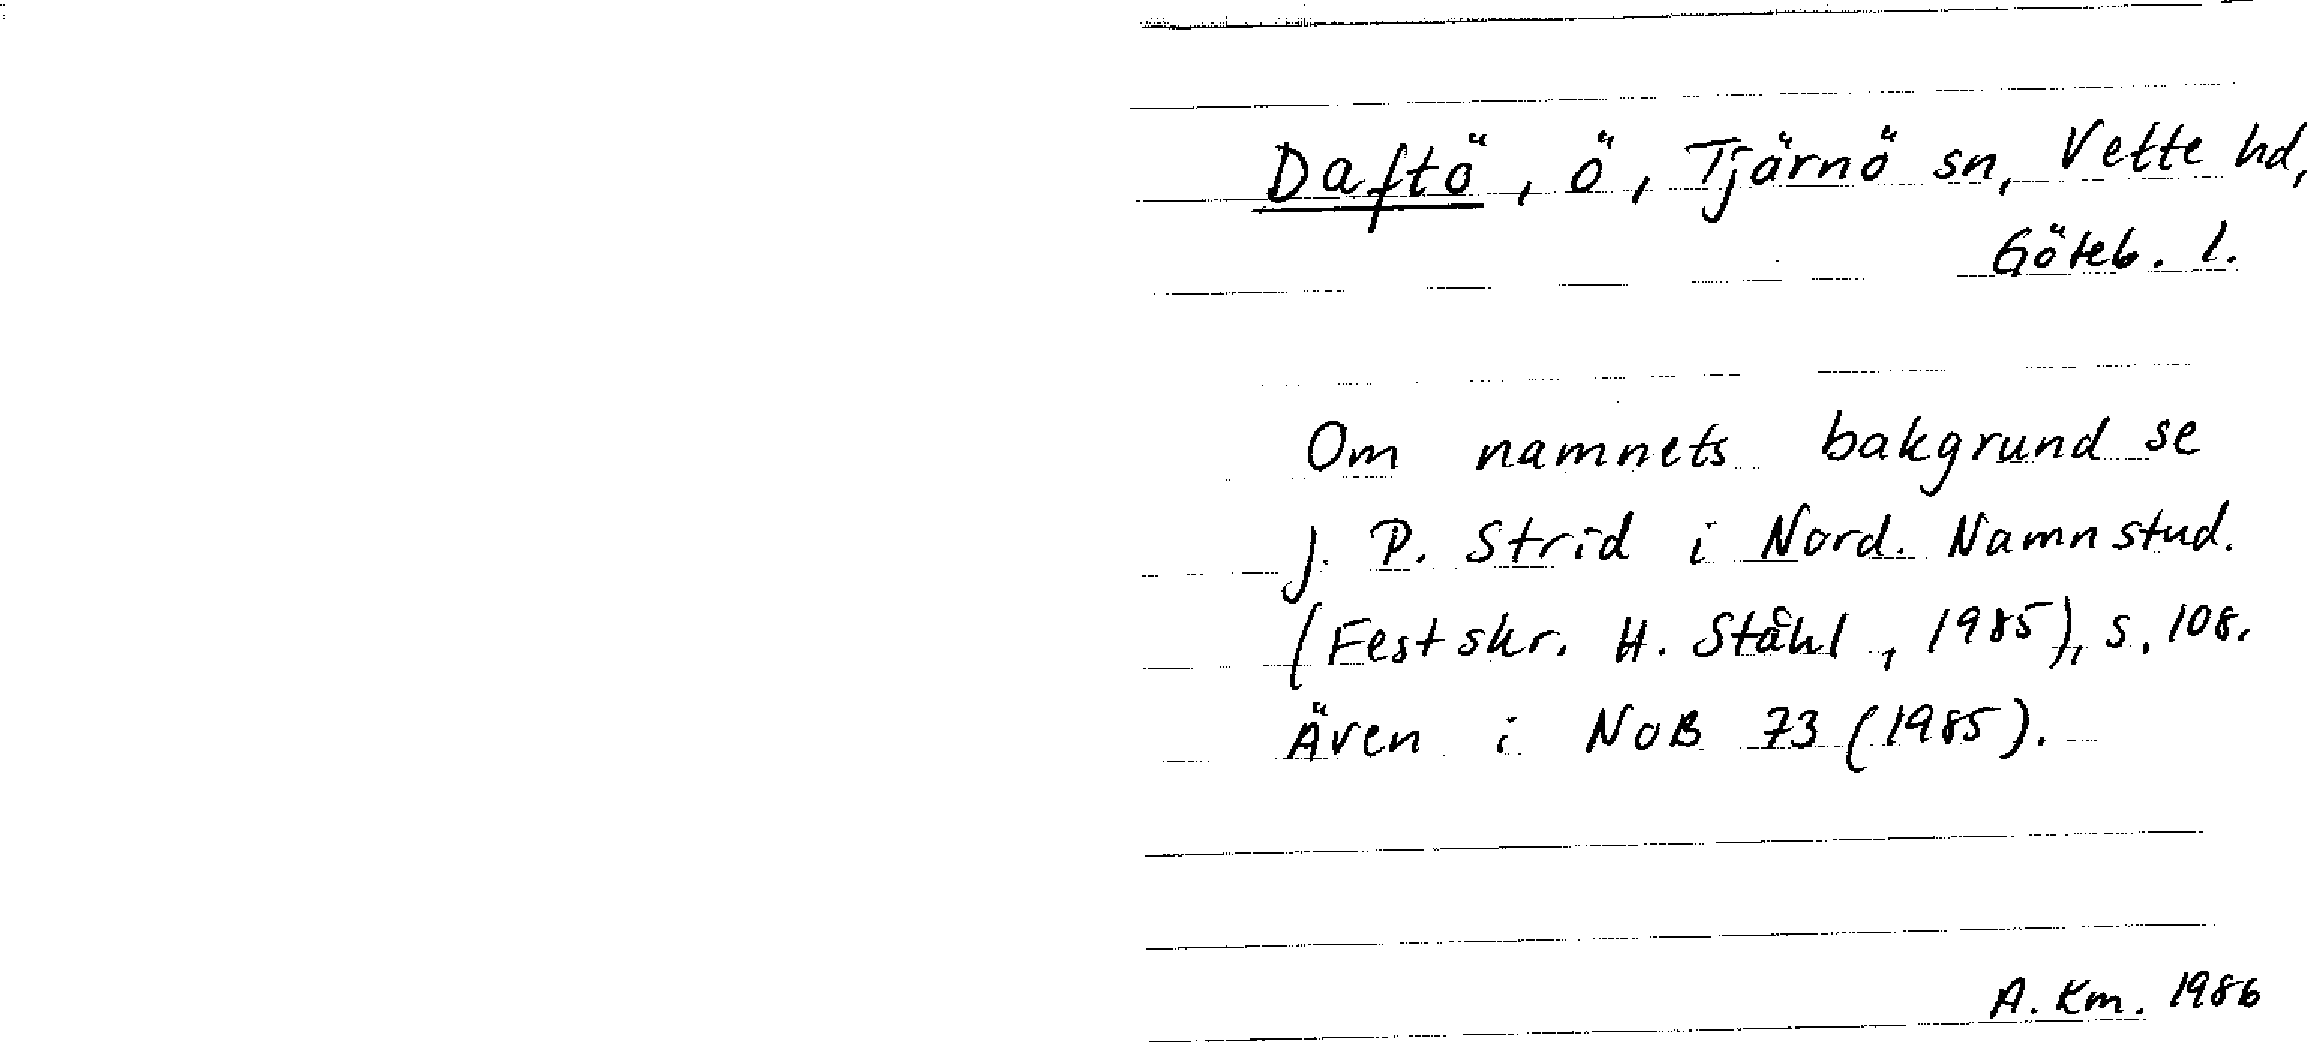 Daftö, ö, Tjärnö sn, Vette hd,
Göteb. l.
Om namnets bakgrund se
J. P. Strid i Nord. Namnstud.
(Festskr. H. Ståhl, 1985), s. 108.
Även i NoB 73 (1985).
A. Km. 1986